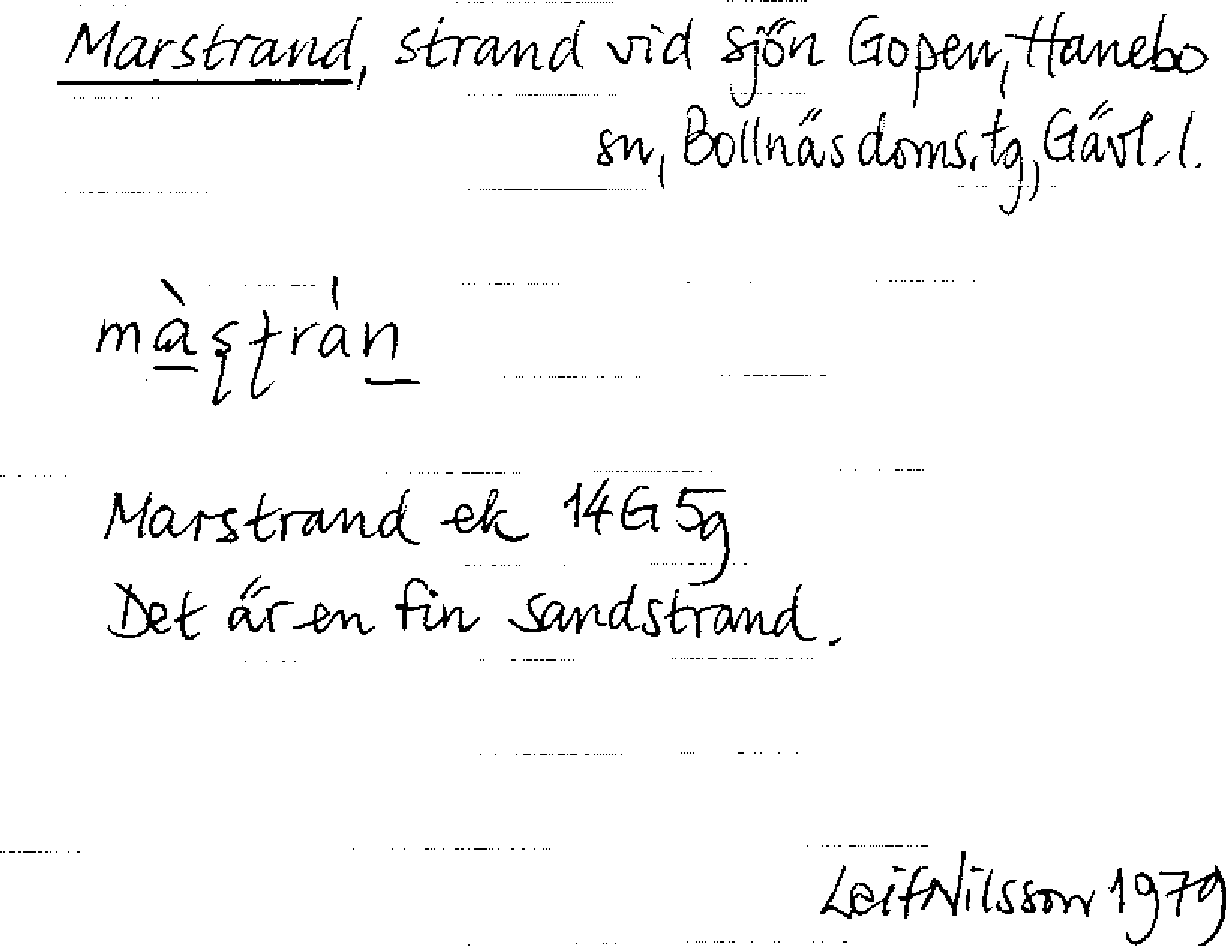 Marstrand, strand vid sjön Gopen, Hanebo
sn, Bollnäs doms. tg, Gävl. l.
mà̱ʂʈrán̲
Marstrand ek 14G5g
Det är en fin sandstrand.
Leif Nilsson 1979